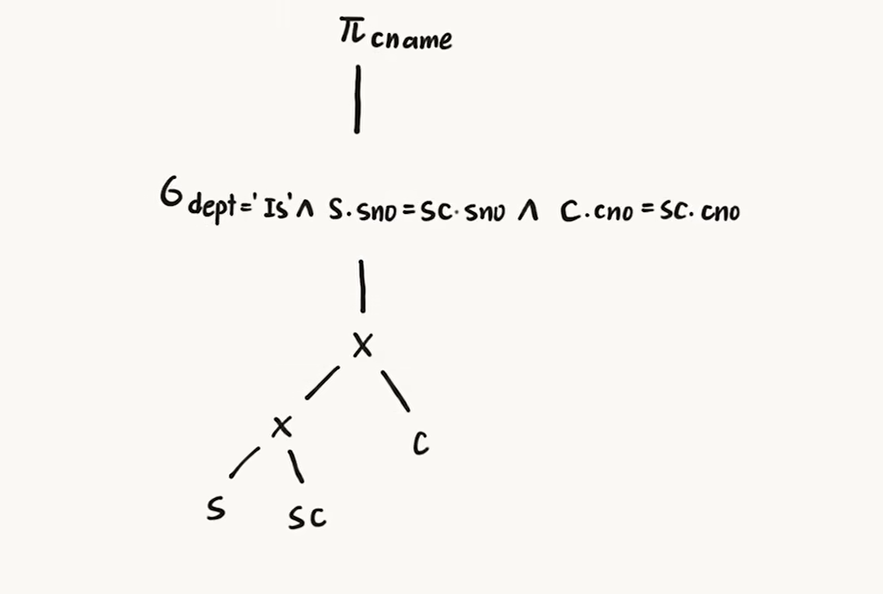 π cname
σ dept='Is'∧ S.sno=SC.sno ∧ C.cno=SC.cno
×
×
C
S SC